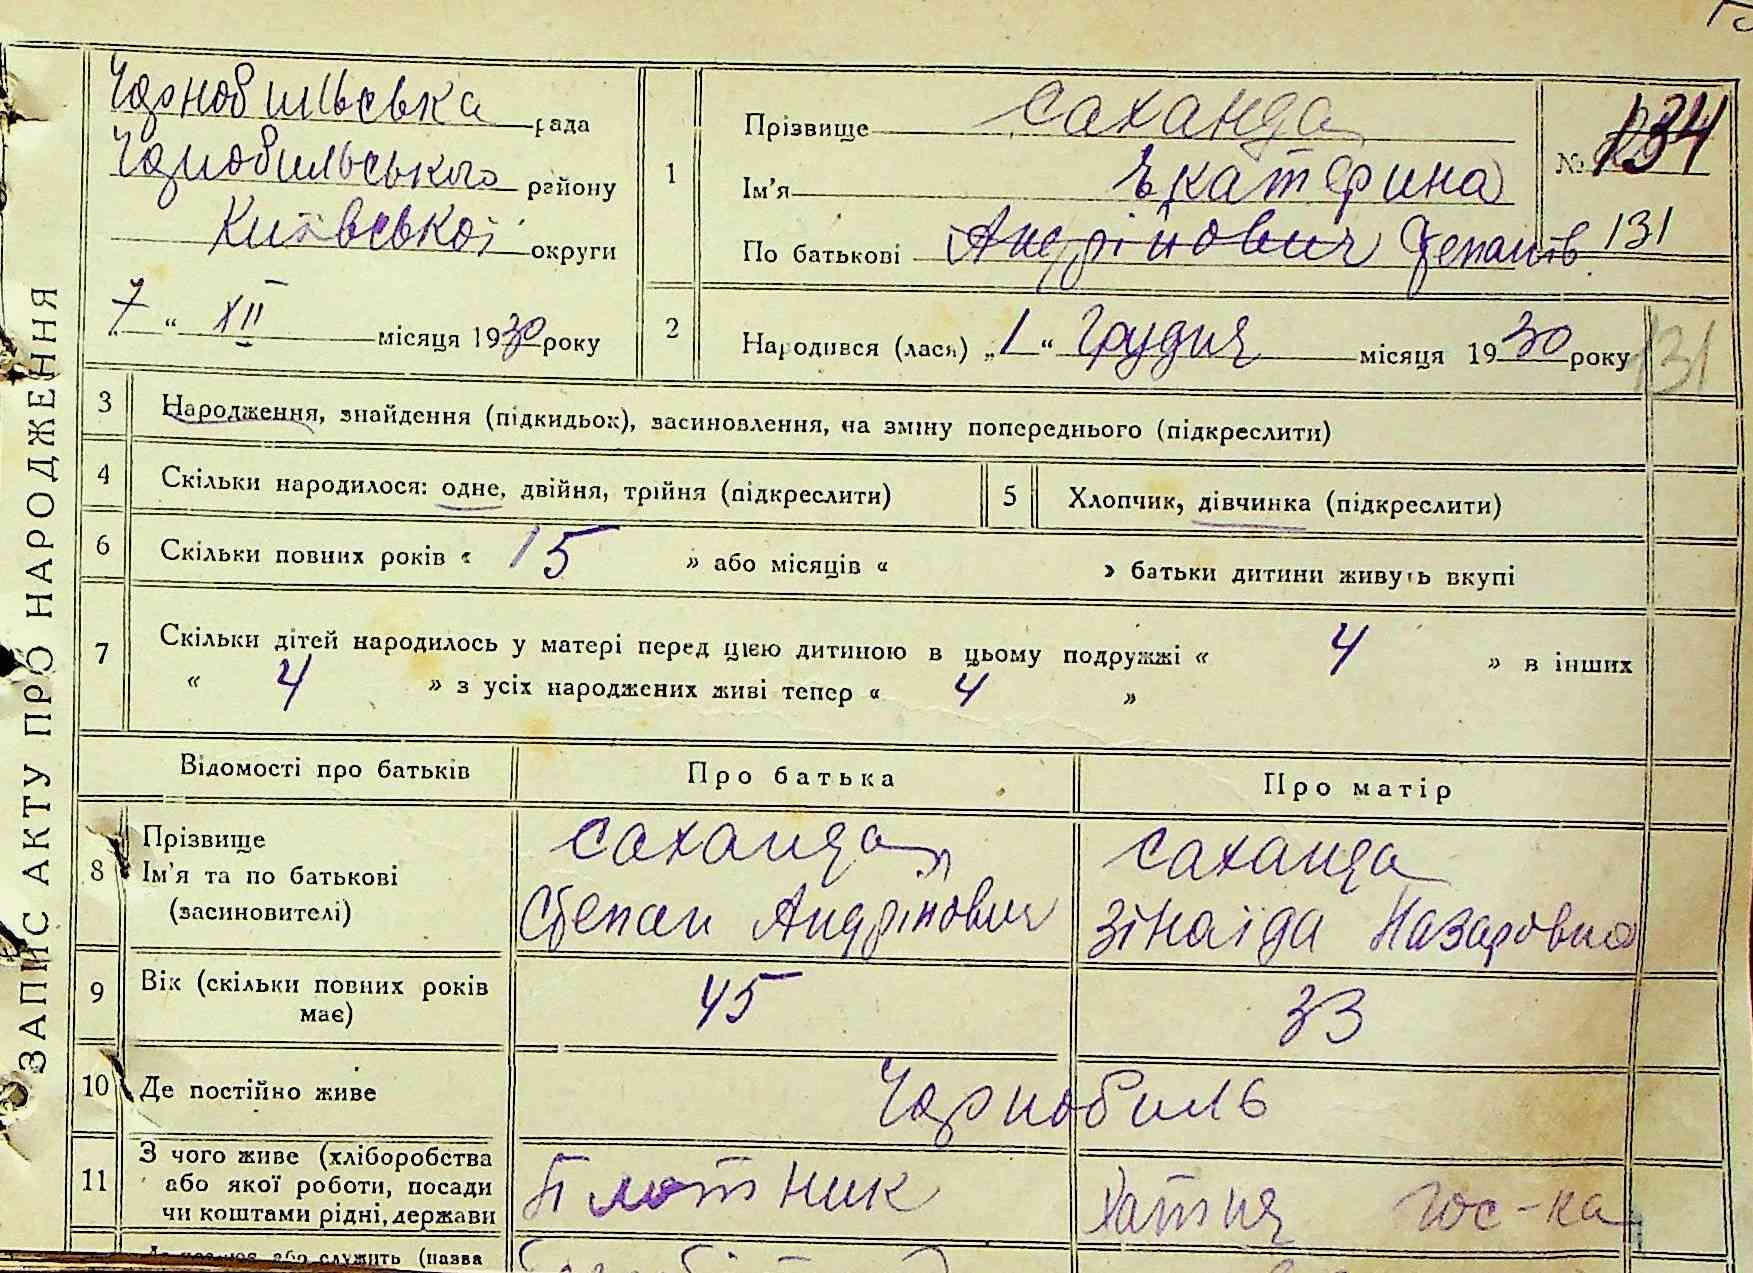 ЗАПИС АКТУ ПРО НАРОДЖЕННЯ
Чорнобильська рада
Чорнобильського району
Київської округи
„7“ XII місяця 1930 року
1
Прізвище Саханда
Ім'я Екатерина
По батькові Андрійович Степанів.
№ 134
131
2
Народився (лася) „1“ Грудня місяця 1930 року
131
3 Народження, знайдення (підкидьок), засиновлення, на зміну попереднього (підкреслити)
4 Скільки народилося: одне, двійня, трійня (підкреслити)
5 Хлопчик, дівчинка (підкреслити)
6 Скільки повних років « 15 » або місяців « » батьки дитини живуть вкупі
7 Скільки дітей народилось у матері перед цією дитиною в цьому подружжі « 4 » в інших
« 4 » з усіх народжених живі тепер « 4 »
Відомості про батьків Про батька Про матір
8 Прізвище
Ім'я та по батькові
(засиновителі)
Саханда
Степан Андрійович
Саханда
Зінаїда Назаровна
9 Вік (скільки повних років
має)
45
33
10 Де постійно живе Чорнобиль
11 З чого живе (хліборобства
або якої роботи, посади
чи коштами рідні, держави
Плотник
Хатня гос-ка
або служить (назва